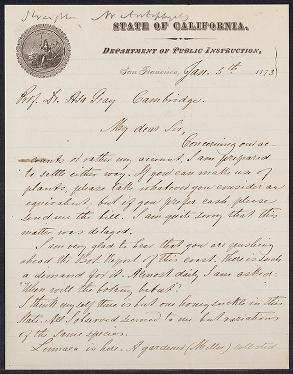 STATE OF CALIFORNIA.
DEPARTMENT OF PUBLIC INSTRUCTION,
San Francisco, Jan. 5th 1873
Prof. Dr. Asa Gray Cambridge.
My dear Sir,
Concerning our ac-
count or rather my account, I am prepared
to settle either way. If you can make use of
plants, please take whatever you consider an
equivalent, but if you prefer cash please
send me the bill. I am quite sorry that this
matter was delayed.
I am very glad to hear that you are pushing
ahead the Bot. Report of this coast. there is such
a demand for it. Almost daily I am asked:
"When will the botany be out?"
I think myself there is but one honeysuckle in this
State. All I observed seemed to me but variations
of the same species.
Linnaea is here. A gardener (Miller) collected